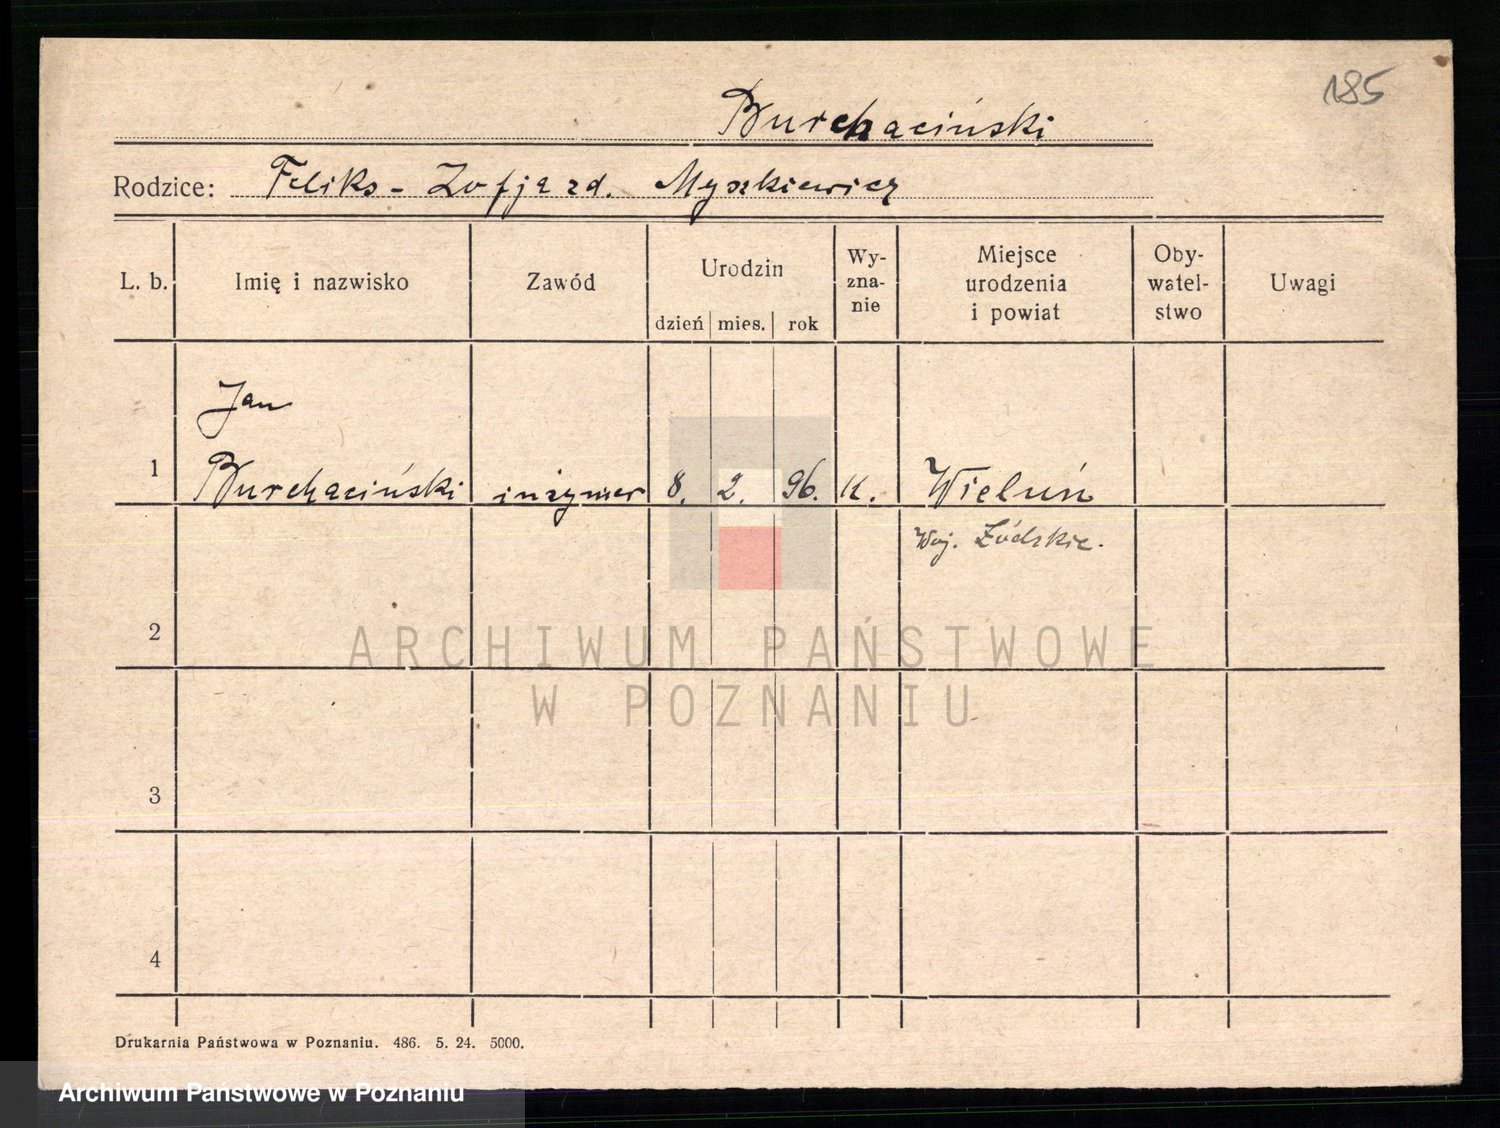 185
Burchaciński
Rodzice: Feliks - Zofja zd. Myszkiewicz
L. b.
Imię i nazwisko
Zawód
Urodzin
dzień mies. rok
Wy-
zna-
nie
Miejsce
urodzenia
i powiat
Oby-
watel-
stwo
Uwagi
Jan
1 Burchaciński inżynier 8. 2. 96. K. Wieluń
Woj. Łódzkie.
2
3
4
ARCHIWUM PAŃSTWOWE
W POZNANIU
Drukarnia Państwowa w Poznaniu. 486. 5. 24. 5000.
Archiwum Państwowe w Poznaniu